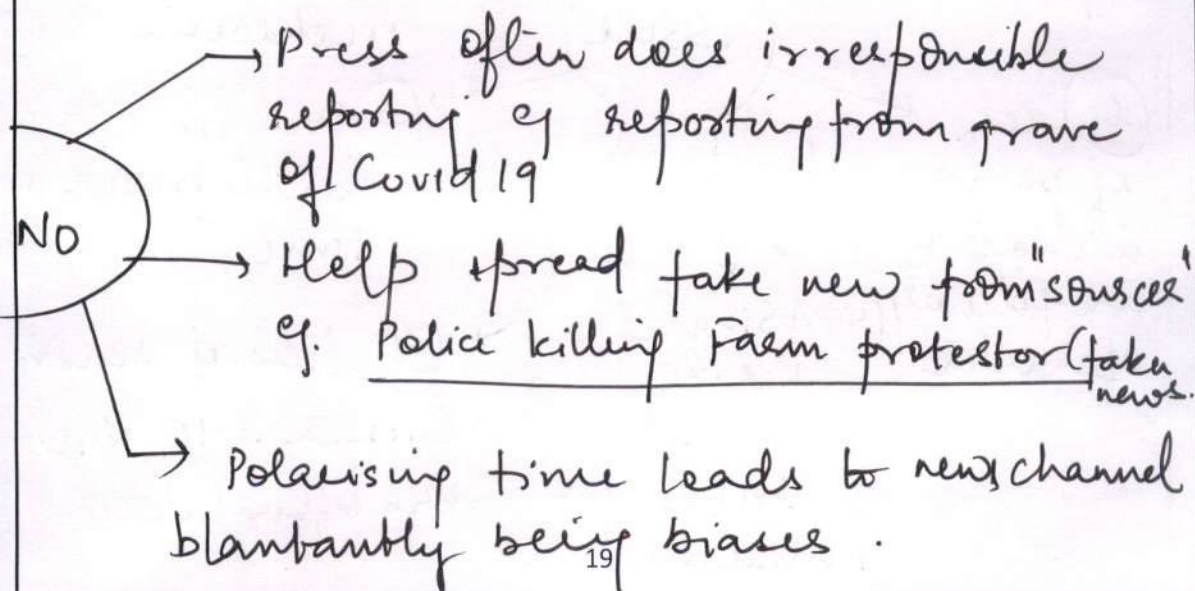 Press often does irresponsible
reporting eg reporting from grave
of Covid 19
NO
Help spread fake new from "sources"
eg. Police killing Farm protestor (fake
news.
Polarising time leads to news channel
blantantly being biases.
19